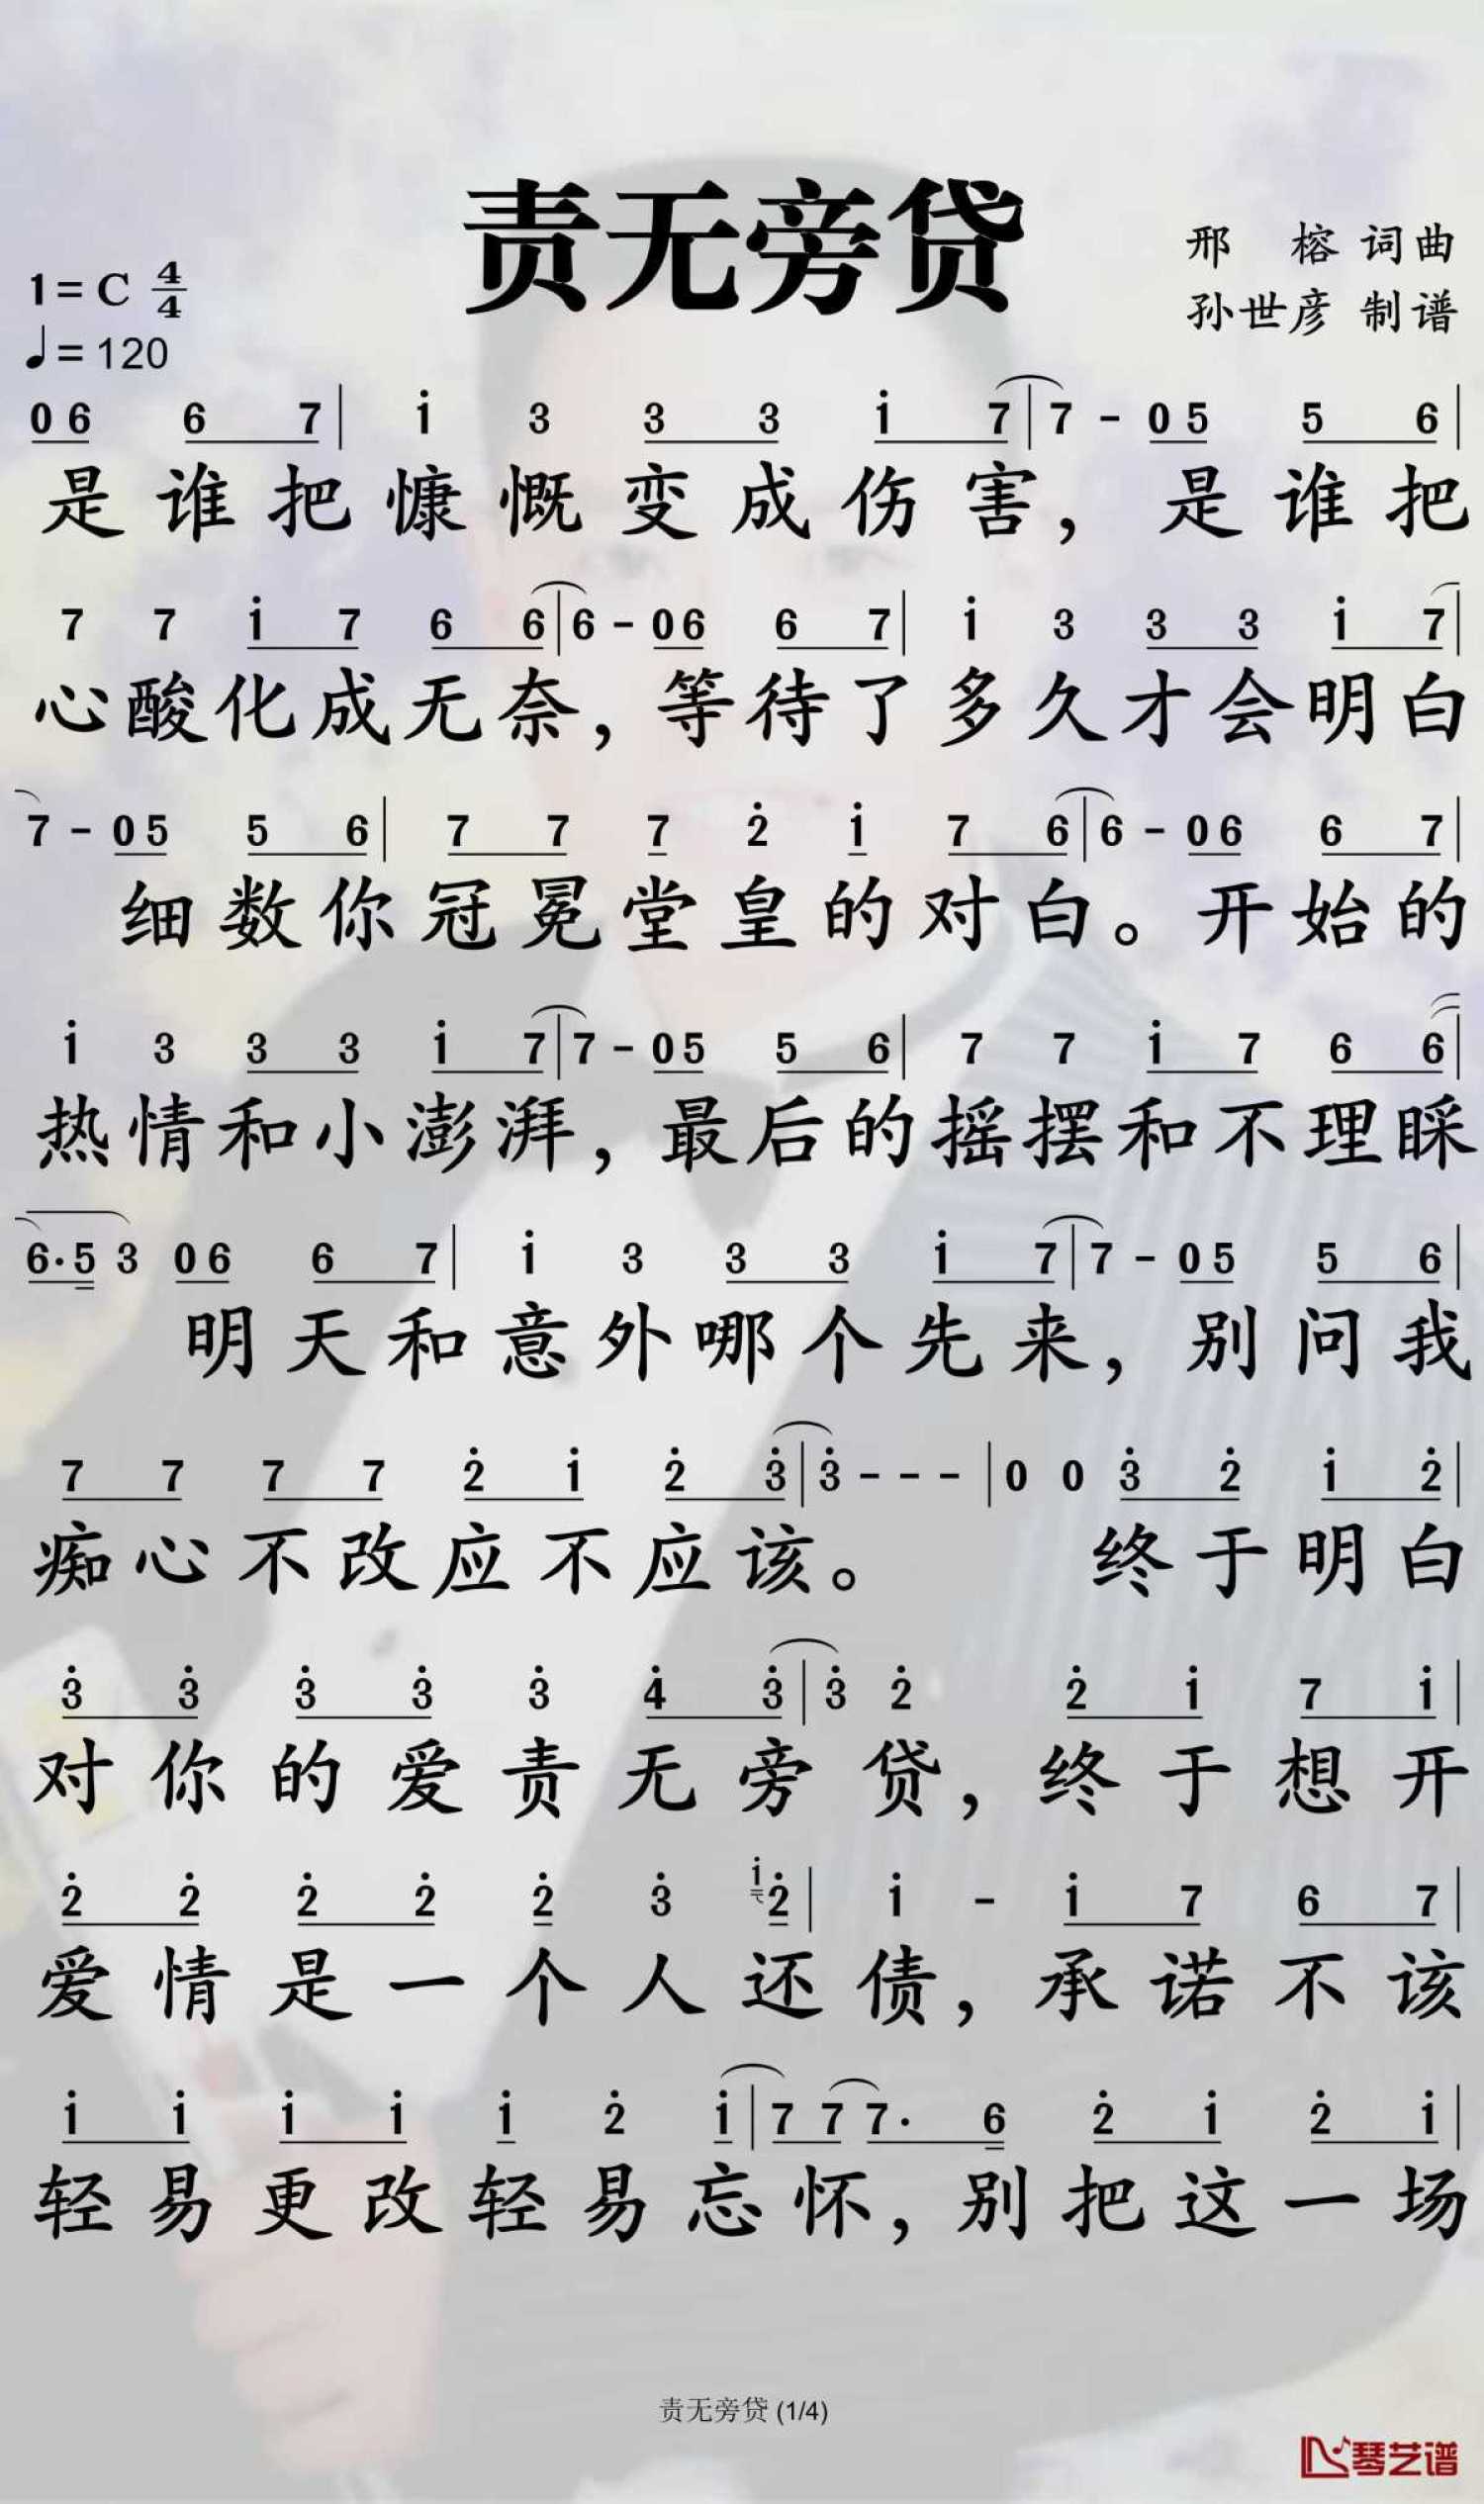 责无旁贷
邢 榕 词曲
孙世彦 制谱
1=C 4/4
♩=120
0 6 6 7 | i 3 3 3 i 7 | 7 - 0 5 5 6 |
是谁把慷慨变成伤害，是谁把
7 7 i 7 6 6 | 6 - 0 6 6 7 | i 3 3 3 i 7 |
心酸化成无奈，等待了多久才会明白
7 - 0 5 5 6 | 7 7 7 2̇ i 7 6 | 6 - 0 6 6 7 |
细数你冠冕堂皇的对白。开始的
i 3 3 3 i 7 | 7 - 0 5 5 6 | 7 7 i 7 6 6 |
热情和小澎湃，最后的摇摆和不理睬
6· 5 3 0 6 6 7 | i 3 3 3 i 7 | 7 - 0 5 5 6 |
明天和意外哪个先来，别问我
7 7 7 7 2̇ i 2̇ 3̇ | 3̇ - - - | 0 0 3̇ 2̇ i 2̇ |
痴心不改应不应该。 终于明白
3̇ 3̇ 3̇ 3̇ 3̇ 4̇ 3̇ | 3̇ 2̇ 2̇ i 7 i |
对你的爱责无旁贷，终于想开
2̇ 2̇ 2̇ 2̇ 2̇ 3̇ i 2̇ | i - i 7 6 7 |
爱情是一个人还债，承诺不该
i i i i i 2̇ i | 7 7 7· 6 2̇ i 2̇ i |
轻易更改轻易忘怀，别把这一场
责无旁贷 (1/4)
琴艺谱